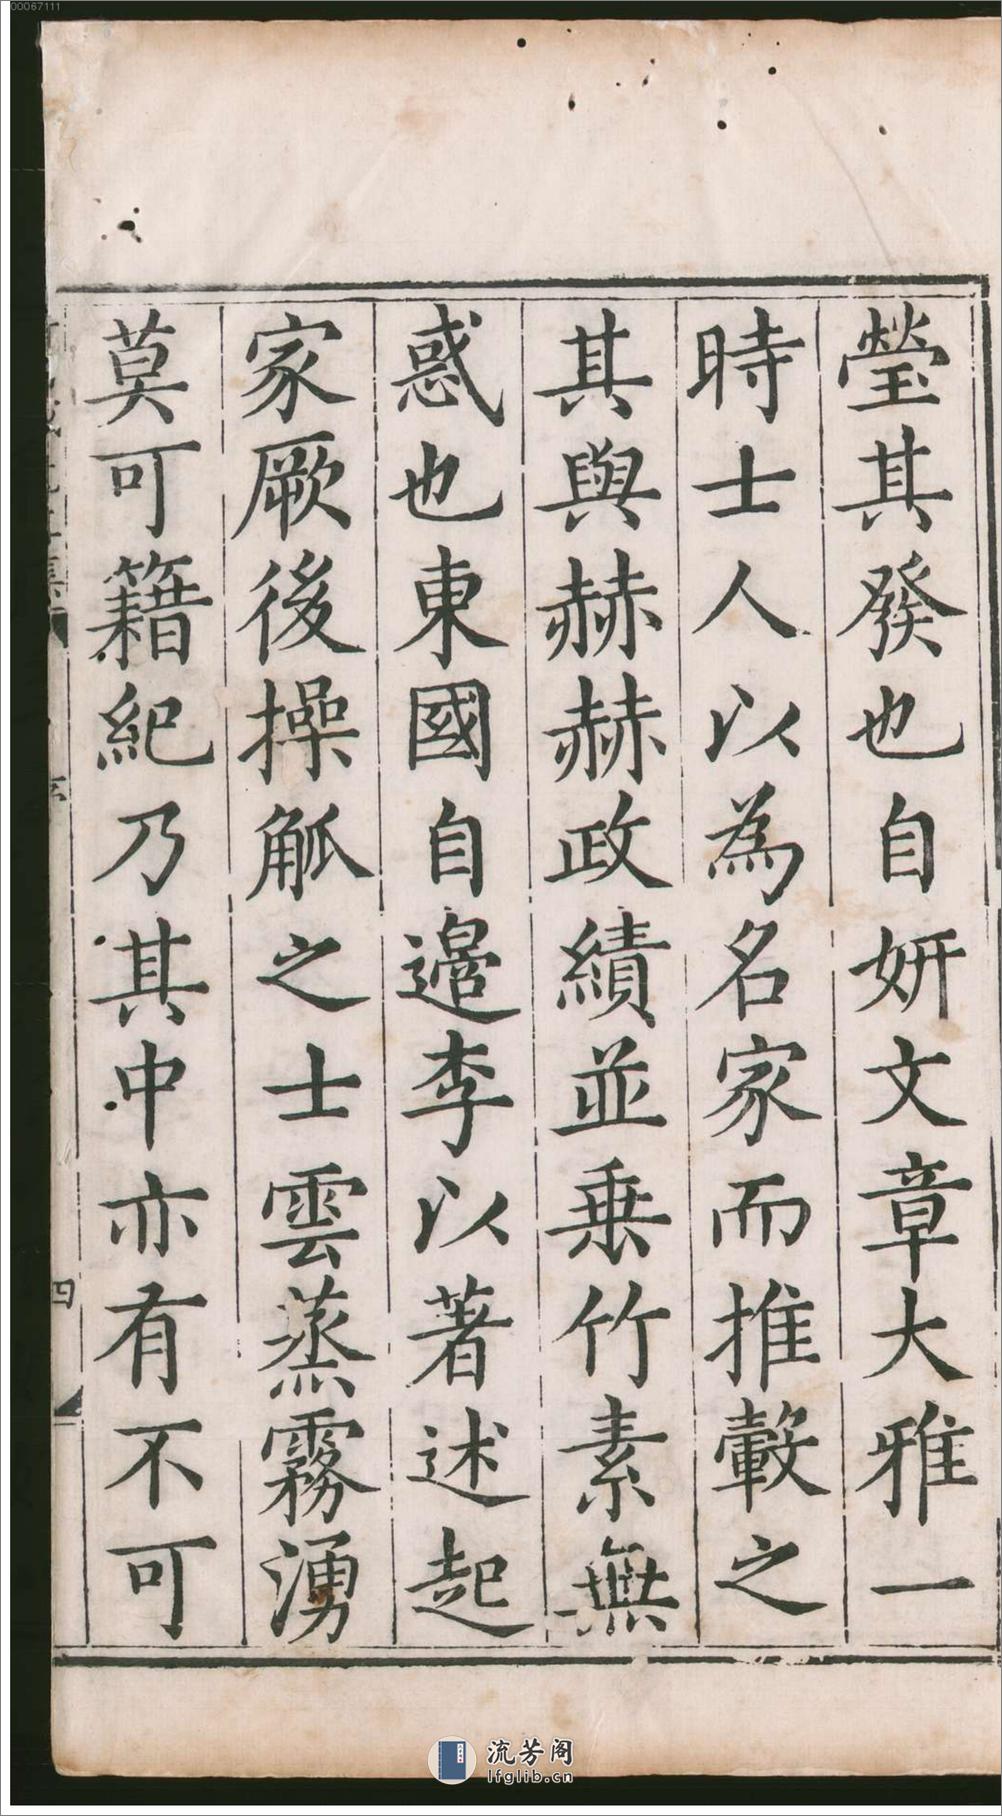 00067111
瑩其發也自妍文章大雅一
時士人以為名家而推轂之
其與赫赫政績並乗竹素無
惑也東國自邉李以著述起
家厥後操觚之士雲蒸霧湧
莫可籍紀乃其中亦有不可
四
流芳阁
lfglib.cn